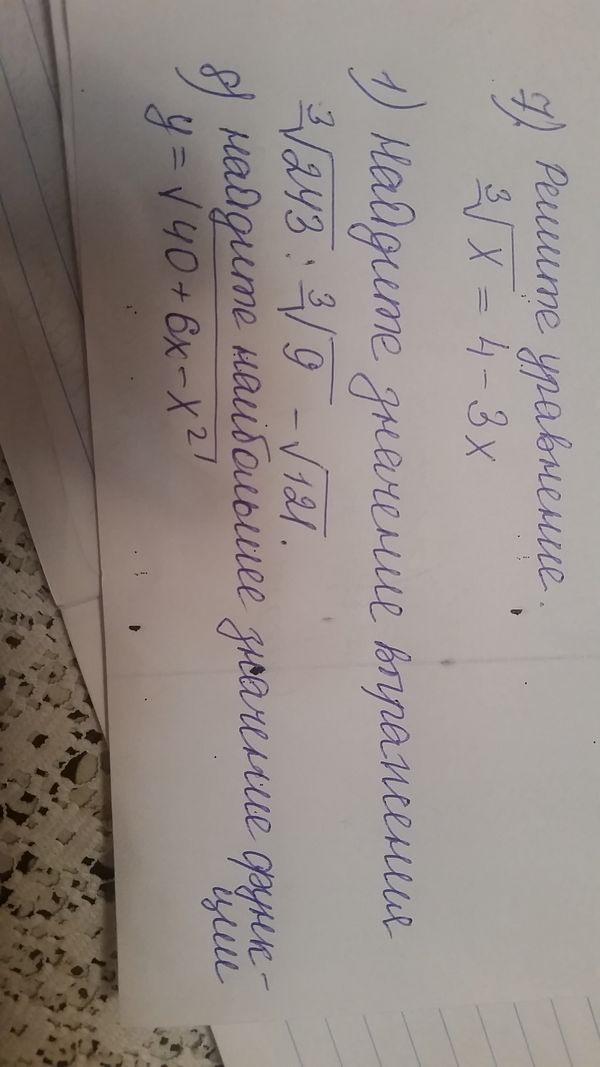 7) Решите уравнение.
∛x = 4 - 3x
1) Найдите значение выражения
∛243 : ∛9 - √121.
8) найдите наибольшее значение функ-
ции
y = √40 + 6x - x²